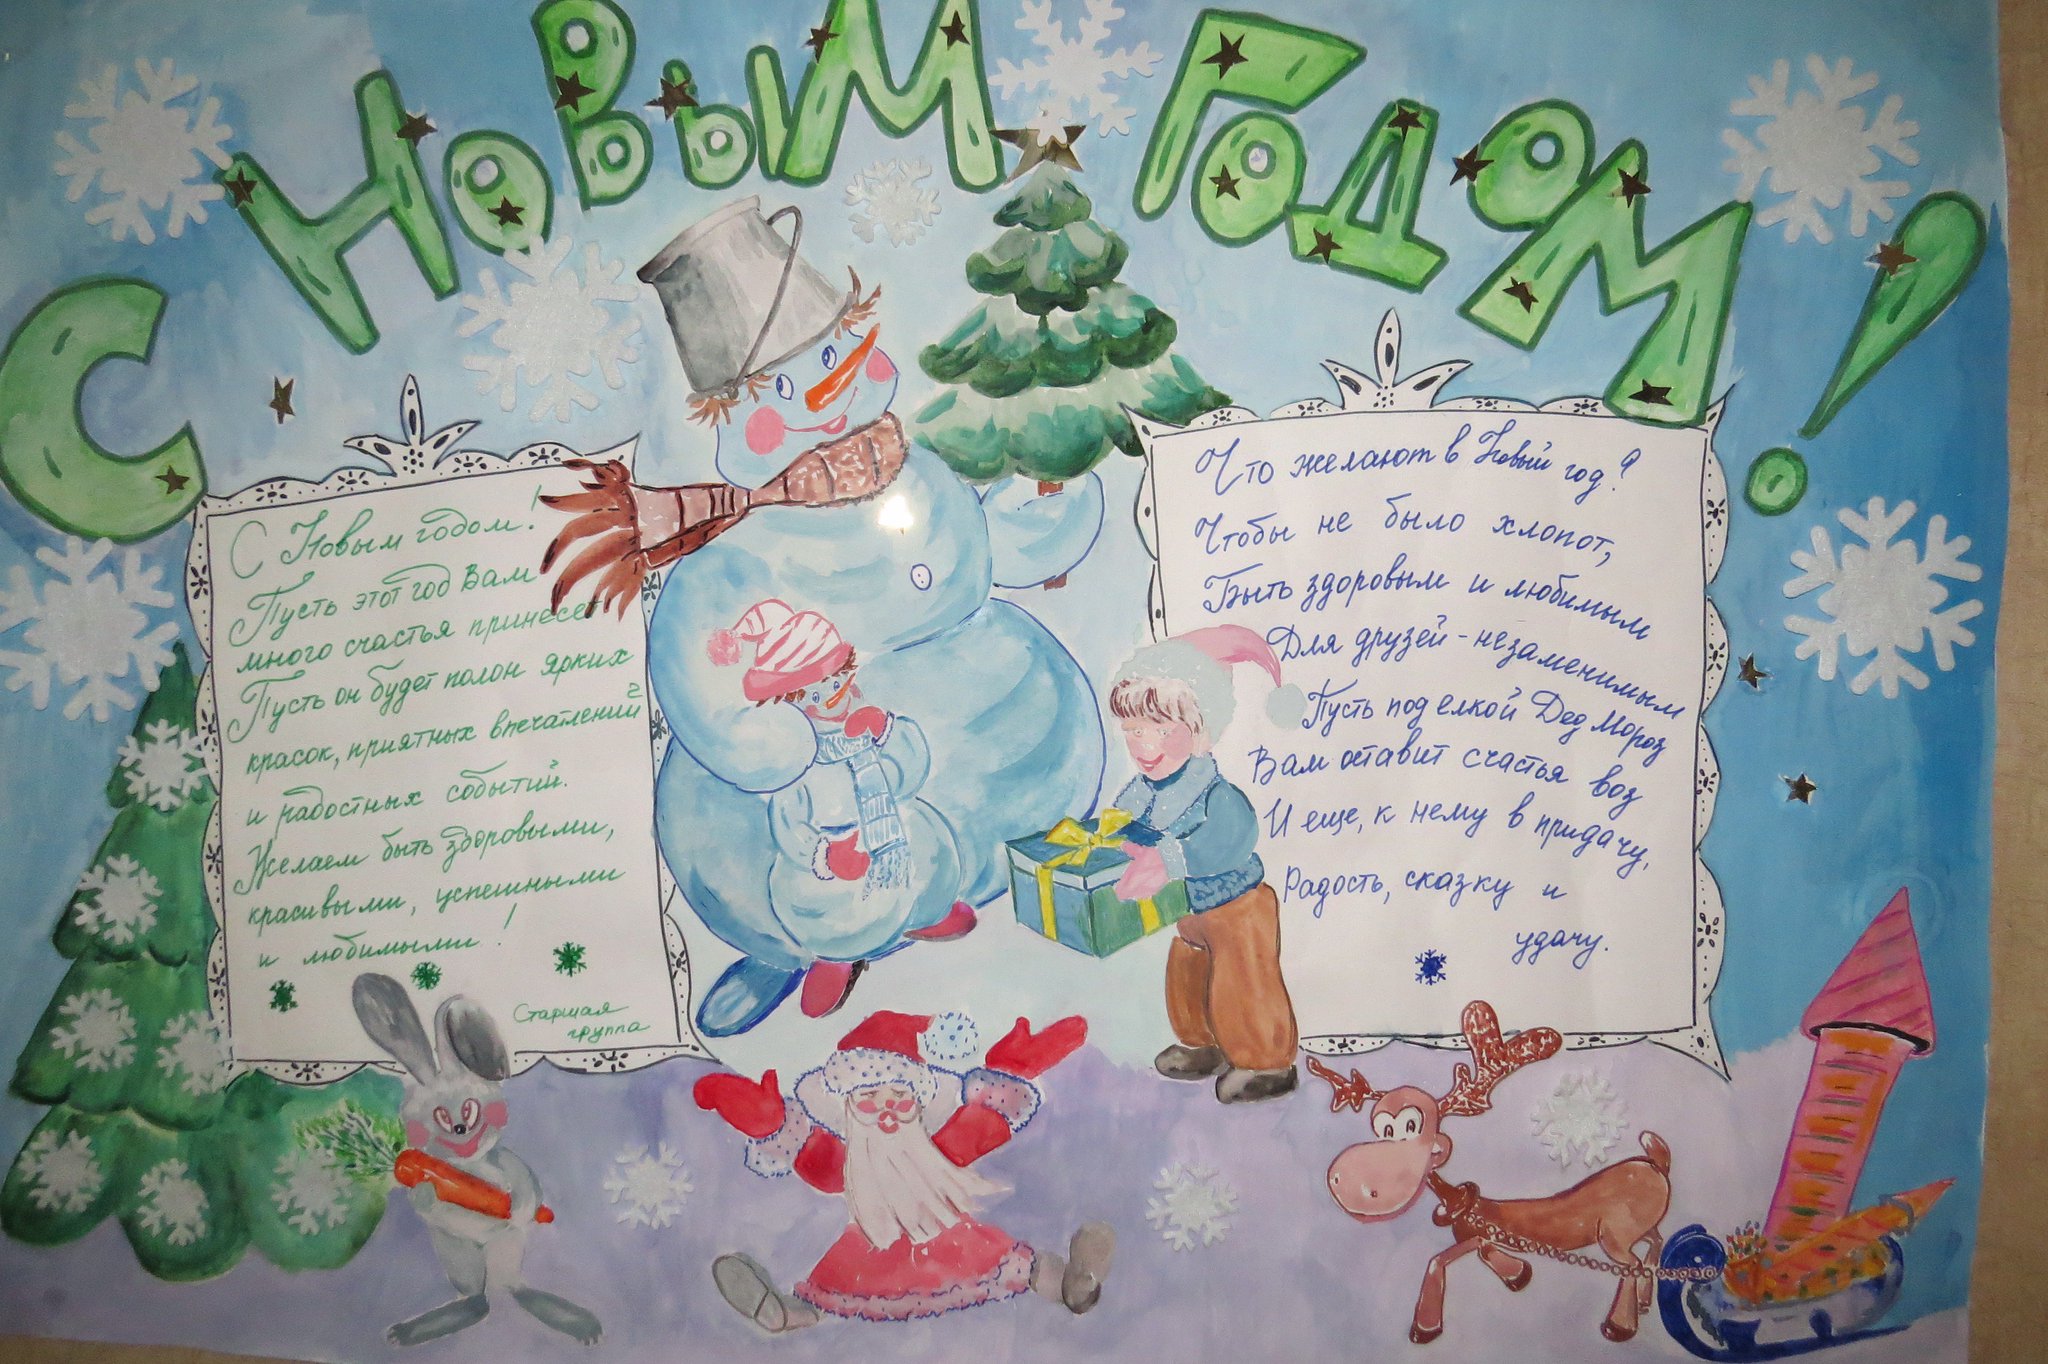 С Новым годом!
С Новым годом!
Пусть этот год Вам
много счастья принесет
Пусть он будет полон ярких
красок, приятных впечатлений
и радостных событий.
Желаем быть здоровыми,
красивыми, успешными
и любимыми!
Старшая
группа
Что желают в Новый год?
Чтобы не было хлопот,
Быть здоровым и любимым
Для друзей - незаменимым
Пусть под елкой Дед Мороз
Вам оставит счастья воз
И еще, к нему в придачу,
Радость, сказку и
удачу.